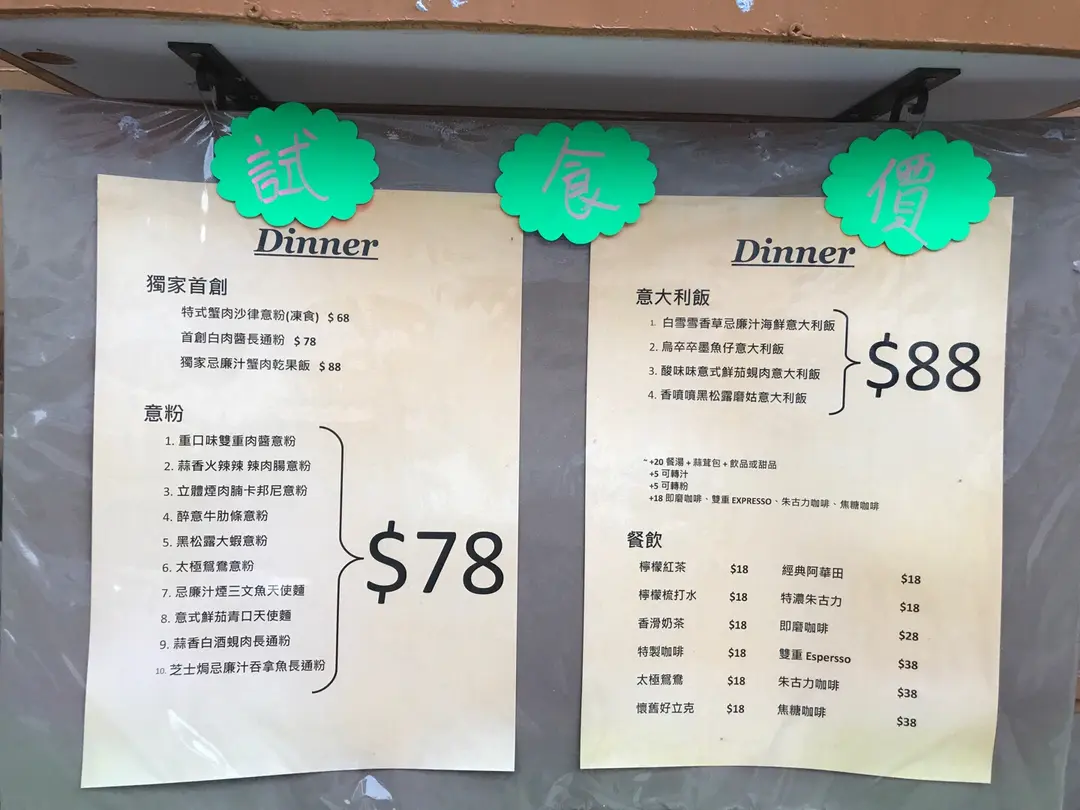 試 食 價
Dinner
獨家首創
特式蟹肉沙律意粉(凍食) $ 68
首創白肉醬長通粉 $ 78
獨家忌廉汁蟹肉乾果飯 $ 88
意粉
1. 重口味雙重肉醬意粉
2. 蒜香火辣辣 辣肉腸意粉
3. 立體煙肉腩卡邦尼意粉
4. 醉意牛肋條意粉
5. 黑松露大蝦意粉
6. 太極鴛鴦意粉
7. 忌廉汁煙三文魚天使麵
8. 意式鮮茄青口天使麵
9. 蒜香白酒蜆肉長通粉
10. 芝士焗忌廉汁吞拿魚長通粉
$78
Dinner
意大利飯
1. 白雪雪香草忌廉汁海鮮意大利飯
2. 烏卒卒墨魚仔意大利飯
3. 酸味味意式鮮茄蜆肉意大利飯
4. 香噴噴黑松露磨姑意大利飯
$88
~ +20 餐湯 + 蒜茸包 + 飲品或甜品
+5 可轉汁
+5 可轉粉
+18 即磨咖啡、雙重 EXPRESSO、朱古力咖啡、焦糖咖啡
餐飲
檸檬紅茶 $18 經典阿華田 $18
檸檬梳打水 $18 特濃朱古力 $18
香滑奶茶 $18 即磨咖啡 $28
特製咖啡 $18 雙重 Espersso $38
太極鴛鴦 $18 朱古力咖啡 $38
懷舊好立克 $18 焦糖咖啡 $38